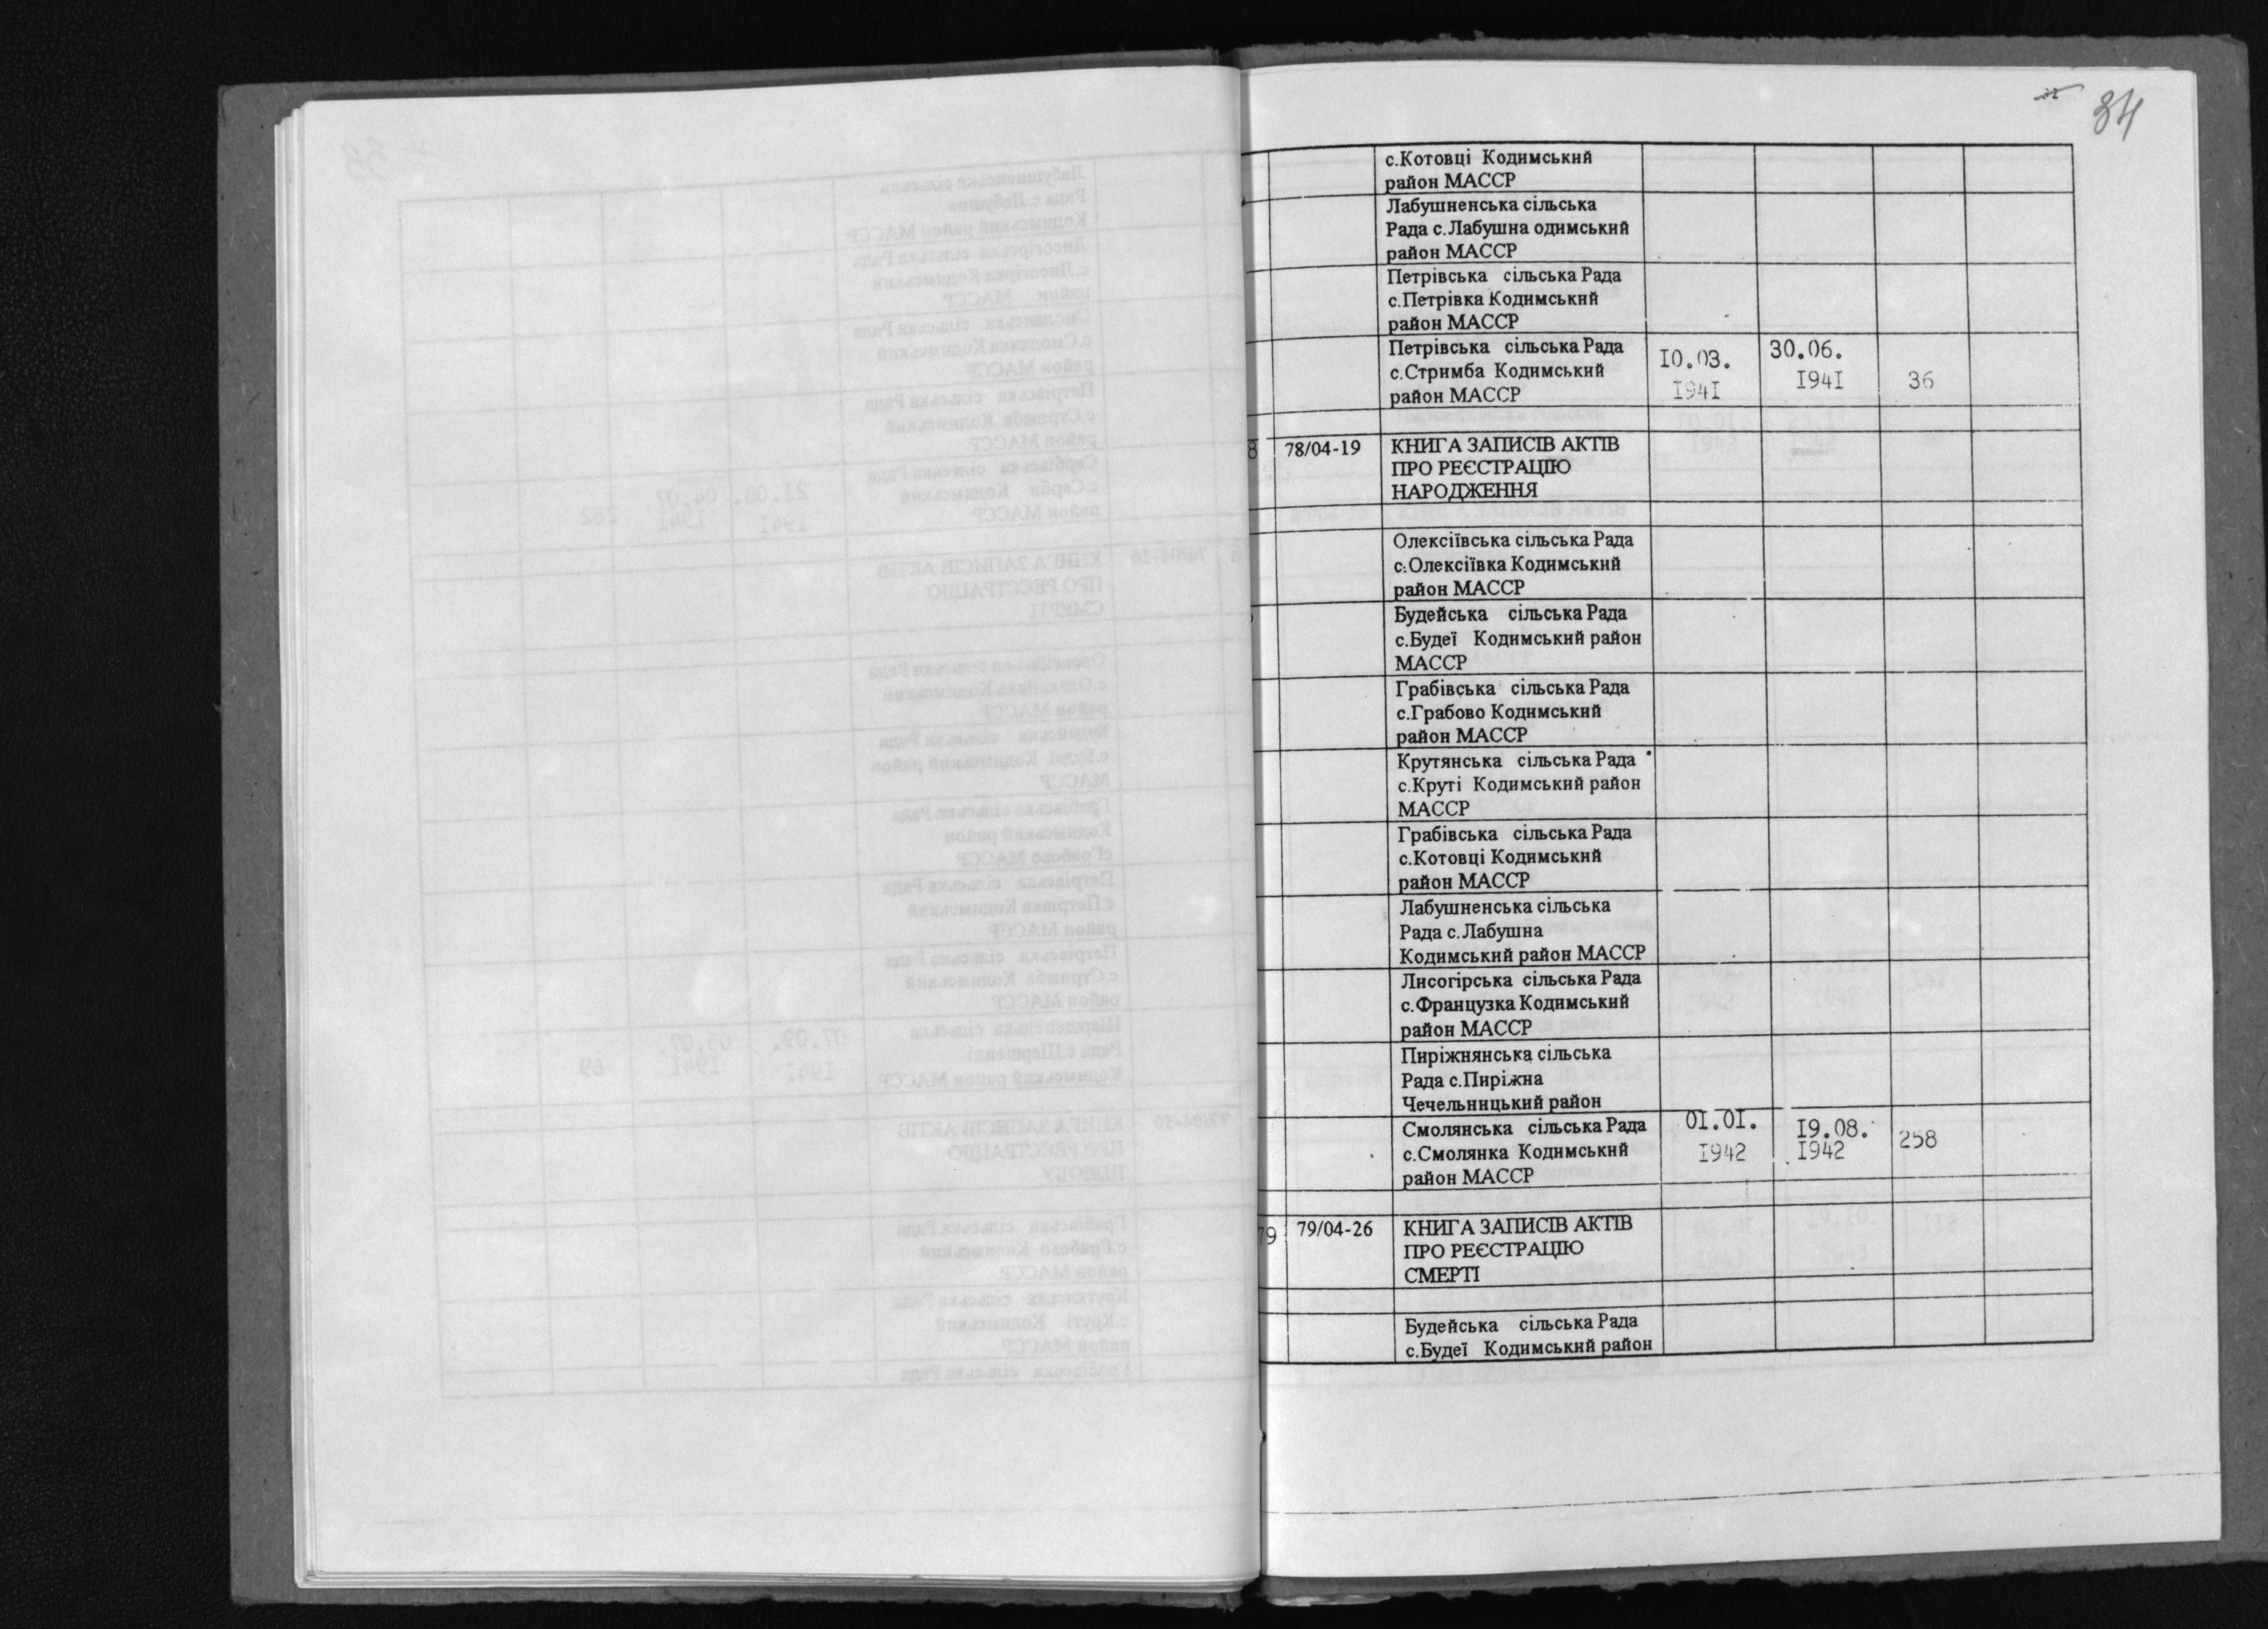 34
с.Котовці Кодимський
район МАССР
Лабушненська сільська
Рада с.Лабушна одимський
район МАССР
Петрівська сільська Рада
с.Петрівка Кодимський
район МАССР
Петрівська сільська Рада
с.Стримба Кодимський
район МАССР
I0.03.
I94I
30.06.
I94I
36
8 78/04-19 КНИГА ЗАПИСІВ АКТІВ
ПРО РЕЄСТРАЦІЮ
НАРОДЖЕННЯ
Олексіївська сільська Рада
с.Олексіївка Кодимський
район МАССР
Будейська сільська Рада
с.Будеї Кодимський район
МАССР
Грабівська сільська Рада
с.Грабово Кодимський
район МАССР
Крутянська сільська Рада
с.Круті Кодимський район
МАССР
Грабівська сільська Рада
с.Котовці Кодимський
район МАССР
Лабушненська сільська
Рада с.Лабушна
Кодимський район МАССР
Лисогірська сільська Рада
с.Французка Кодимський
район МАССР
Пиріжнянська сільська
Рада с.Пиріжна
Чечельницький район
Смолянська сільська Рада
с.Смолянка Кодимський
район МАССР
0I.0I.
I942
I9.08.
I942
258
79 79/04-26 КНИГА ЗАПИСІВ АКТІВ
ПРО РЕЄСТРАЦІЮ
СМЕРТІ
Будейська сільська Рада
с.Будеї Кодимський район